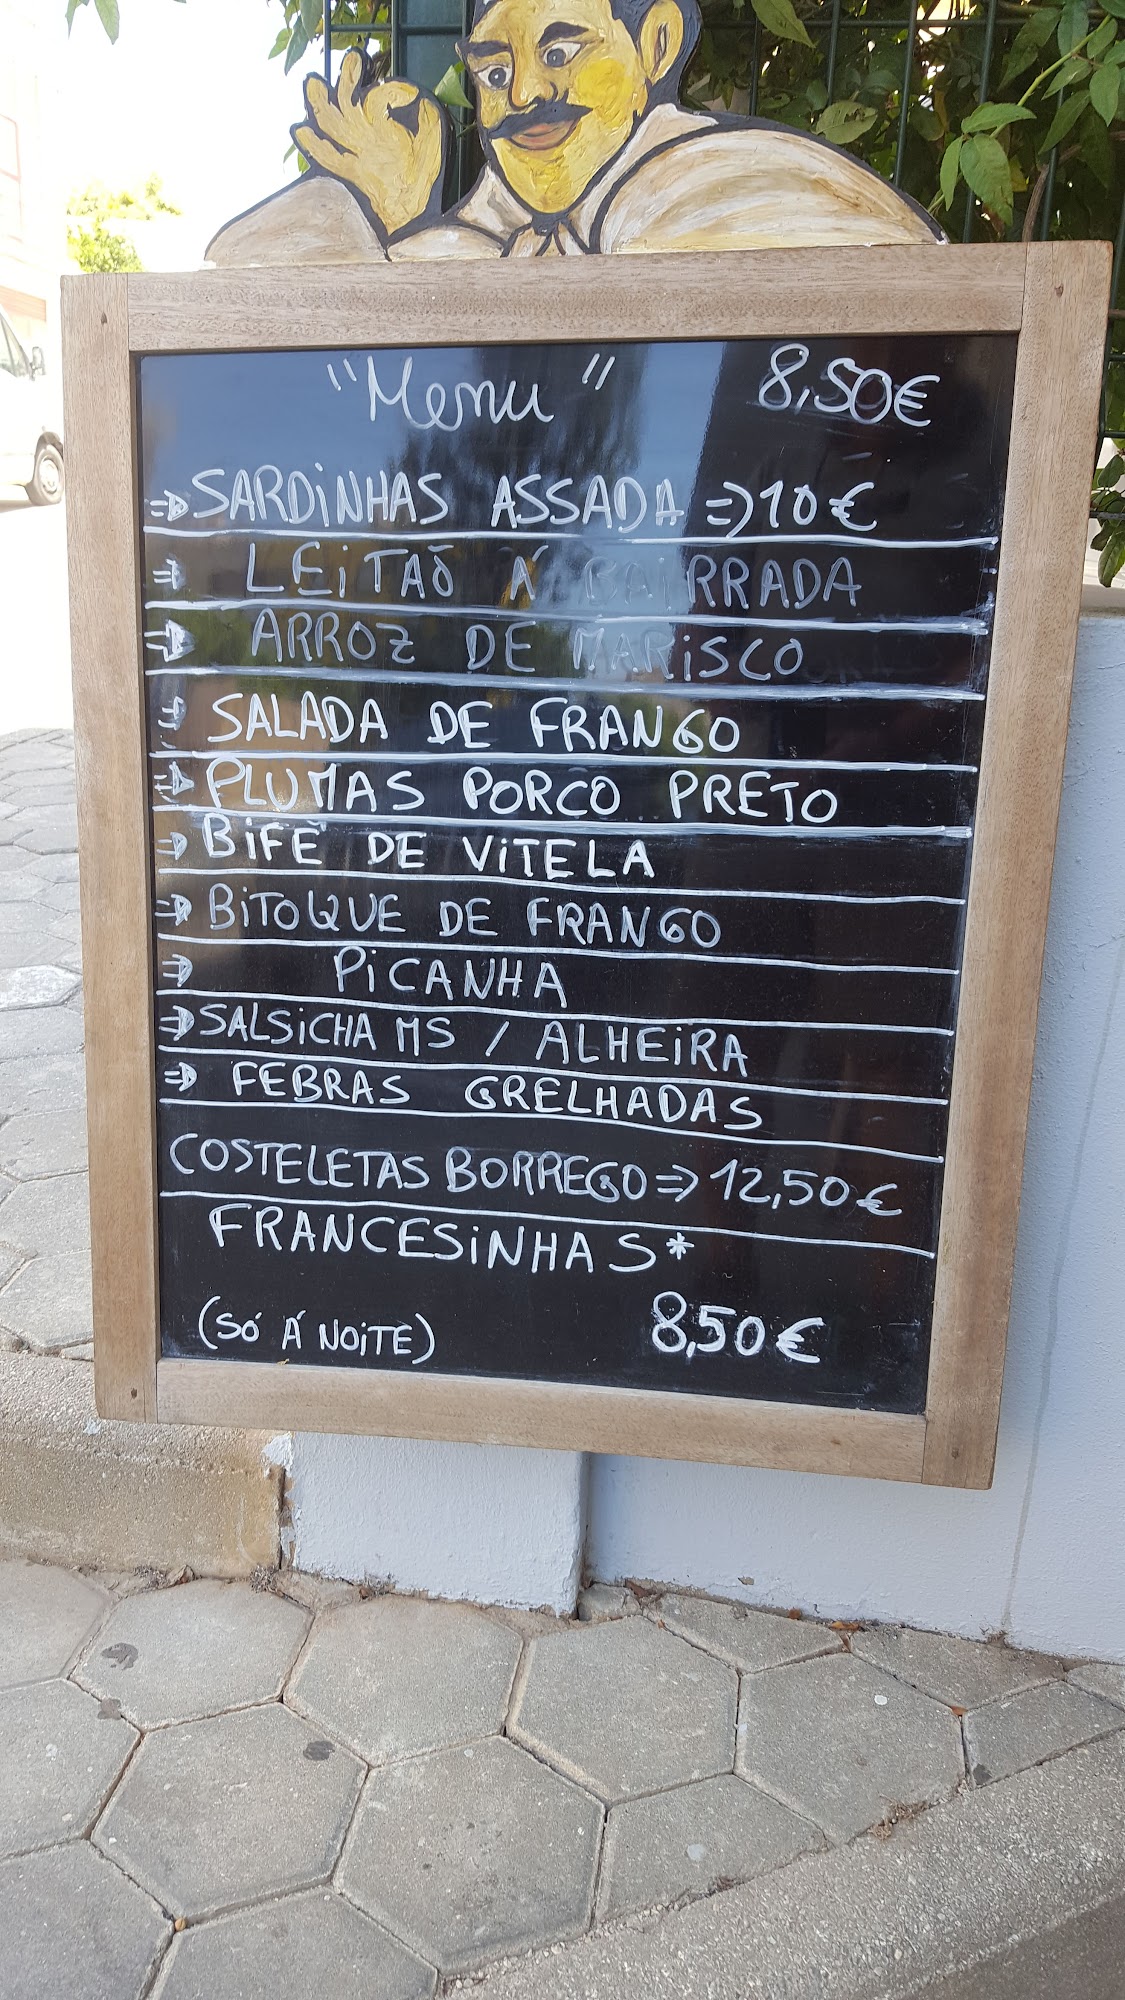 "Menu" 8,50€
⇒ SARDINHAS ASSADA ⇒ 10€
⇒ LEITÃO Á BAIRRADA
⇒ ARROZ DE MARISCO
⇒ SALADA DE FRANGO
⇒ PLUMAS PORCO PRETO
⇒ BIFE DE VITELA
⇒ BITOQUE DE FRANGO
⇒ PICANHA
⇒ SALSICHA MS / ALHEIRA
⇒ FEBRAS GRELHADAS
COSTELETAS BORREGO ⇒ 12,50€
FRANCESINHAS*
(SÓ Á NOITE) 8,50€